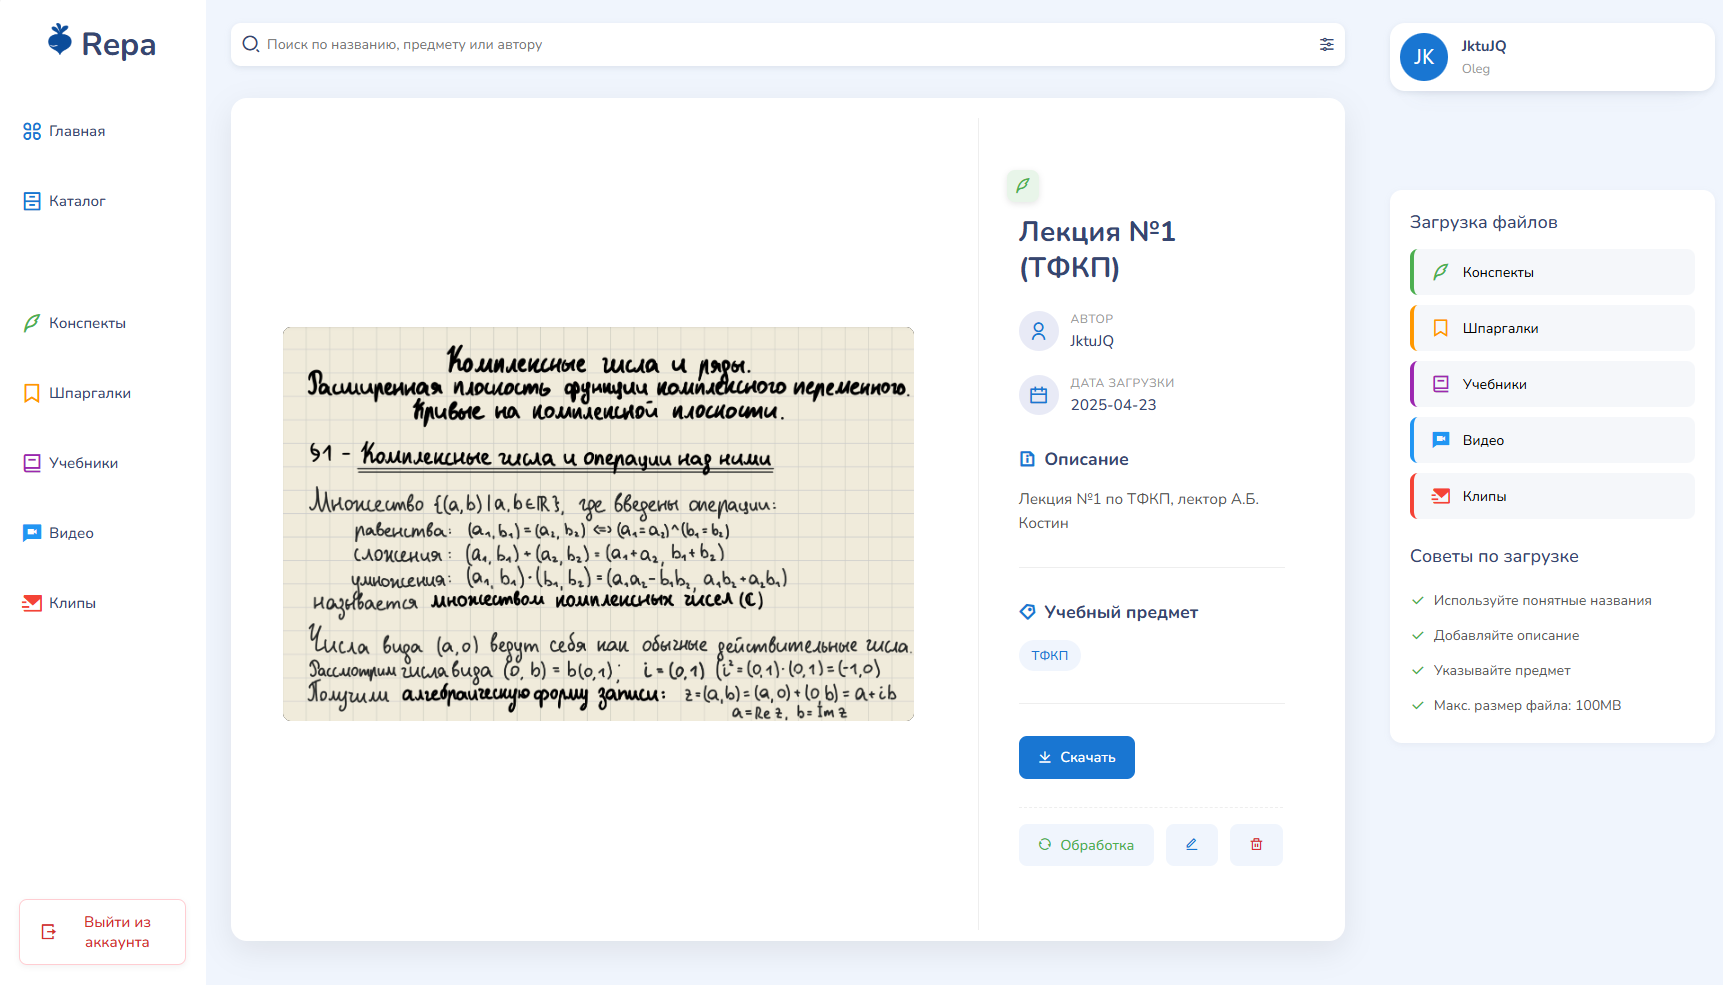 Repa
Главная
Каталог
Конспекты
Шпаргалки
Учебники
Видео
Клипы
Выйти из
аккаунта
Поиск по названию, предмету или автору
Комплексные числа и ряды.
Расширенная плоскость функции комплексного переменного.
Кривые на комплексной плоскости.
§1 - Комплексные числа и операции над ними
Множество {(a,b)|a,b∈ℝ}, где введены операции:
равенства: (a₁,b₁)=(a₂,b₂)⇔(a₁=a₂)^(b₁=b₂)
сложения: (a₁,b₁)+(a₂,b₂)=(a₁+a₂, b₁+b₂)
умножения: (a₁,b₁)·(b₁,b₂)=(a₁a₂-b₁b₂, a₁b₂+a₂b₁)
называется множеством комплексных чисел (ℂ)
Числа вида (a,0) ведут себя как обычные действительные числа.
Рассмотрим числа вида (0,b)=b(0,1); i=(0,1) (i²=(0,1)·(0,1)=(-1,0)
Получили алгебраическую форму записи: z=(a,b)=(a,0)+(0,b)=a+ib
a=Re z, b=Im z
Лекция №1
(ТФКП)
АВТОР
JktuJQ
ДАТА ЗАГРУЗКИ
2025-04-23
Описание
Лекция №1 по ТФКП, лектор А.Б.
Костин
Учебный предмет
ТФКП
Скачать
Обработка
JK
JktuJQ
Oleg
Загрузка файлов
Конспекты
Шпаргалки
Учебники
Видео
Клипы
Советы по загрузке
Используйте понятные названия
Добавляйте описание
Указывайте предмет
Макс. размер файла: 100MB